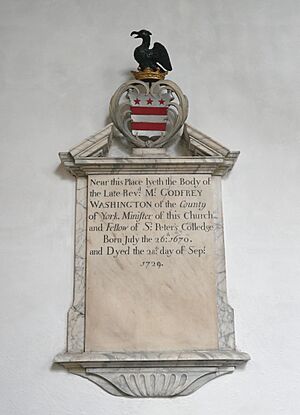 Near this Place lyeth the Body of
the Late Revd. Mr. GODFREY
WASHINGTON of the County
of York, Minister of this Church
and Fellow of St. Peter's Colledge
Born July the 26th. 1670.
and Dyed the 28th. day of Sepr.
1729.